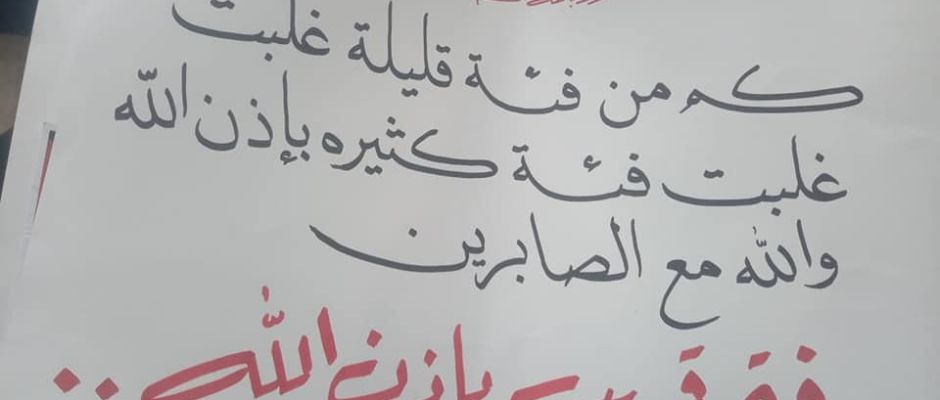 كم من فئة قليلة غلبت
غلبت فئة كثيره بإذن الله
والله مع الصابرين
بإذن الله ..